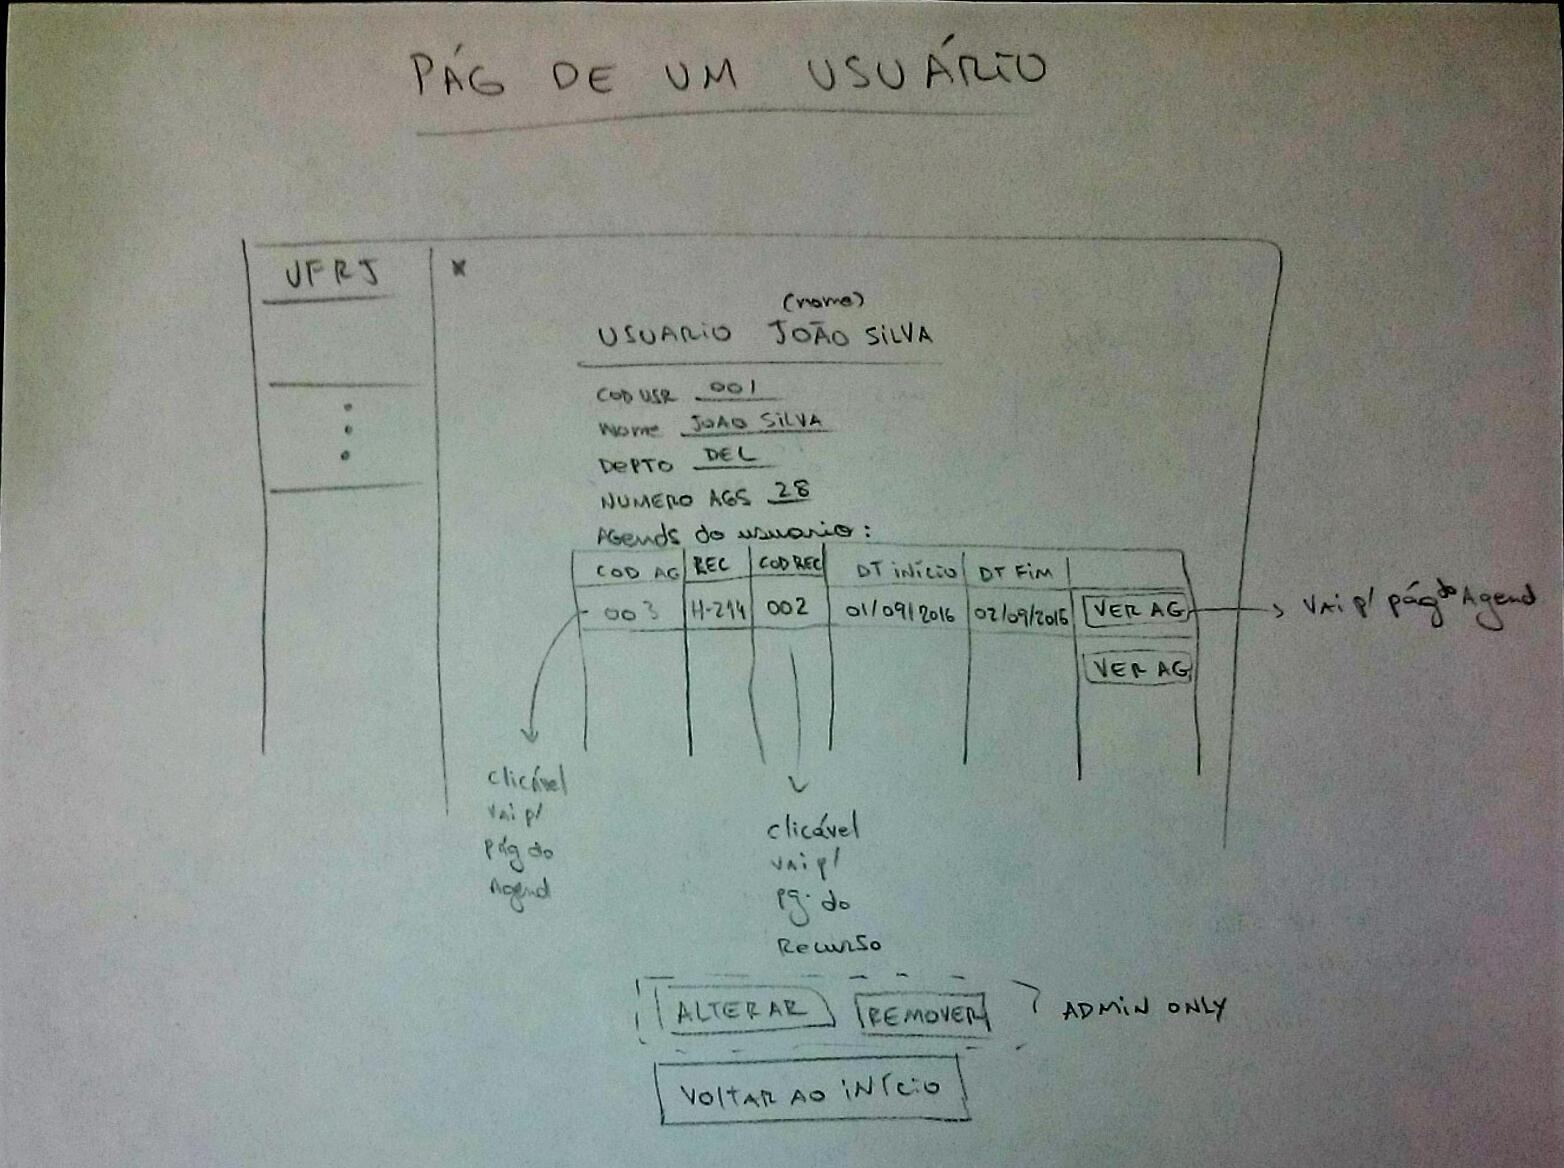 PÁG DE UM USUÁRIO
UFRJ
x
(nome)
USUARIO JOÃO SILVA
COD USR 001
Nome JOAO SILVA
DEPTO DEL
NUMERO AGS 28
Agends do usuario:
COD AG REC COD REC DT INÍCIO DT FIM
003 H-214 002 01/09/2016 02/09/2016 VER AG Vai p/ pág do Agend
VER AG
clicável
vai p/
pág do
Agend
clicável
vai p/
pg. do
Recurso
ALTERAR REMOVER ADMIN ONLY
VOLTAR AO INÍCIO